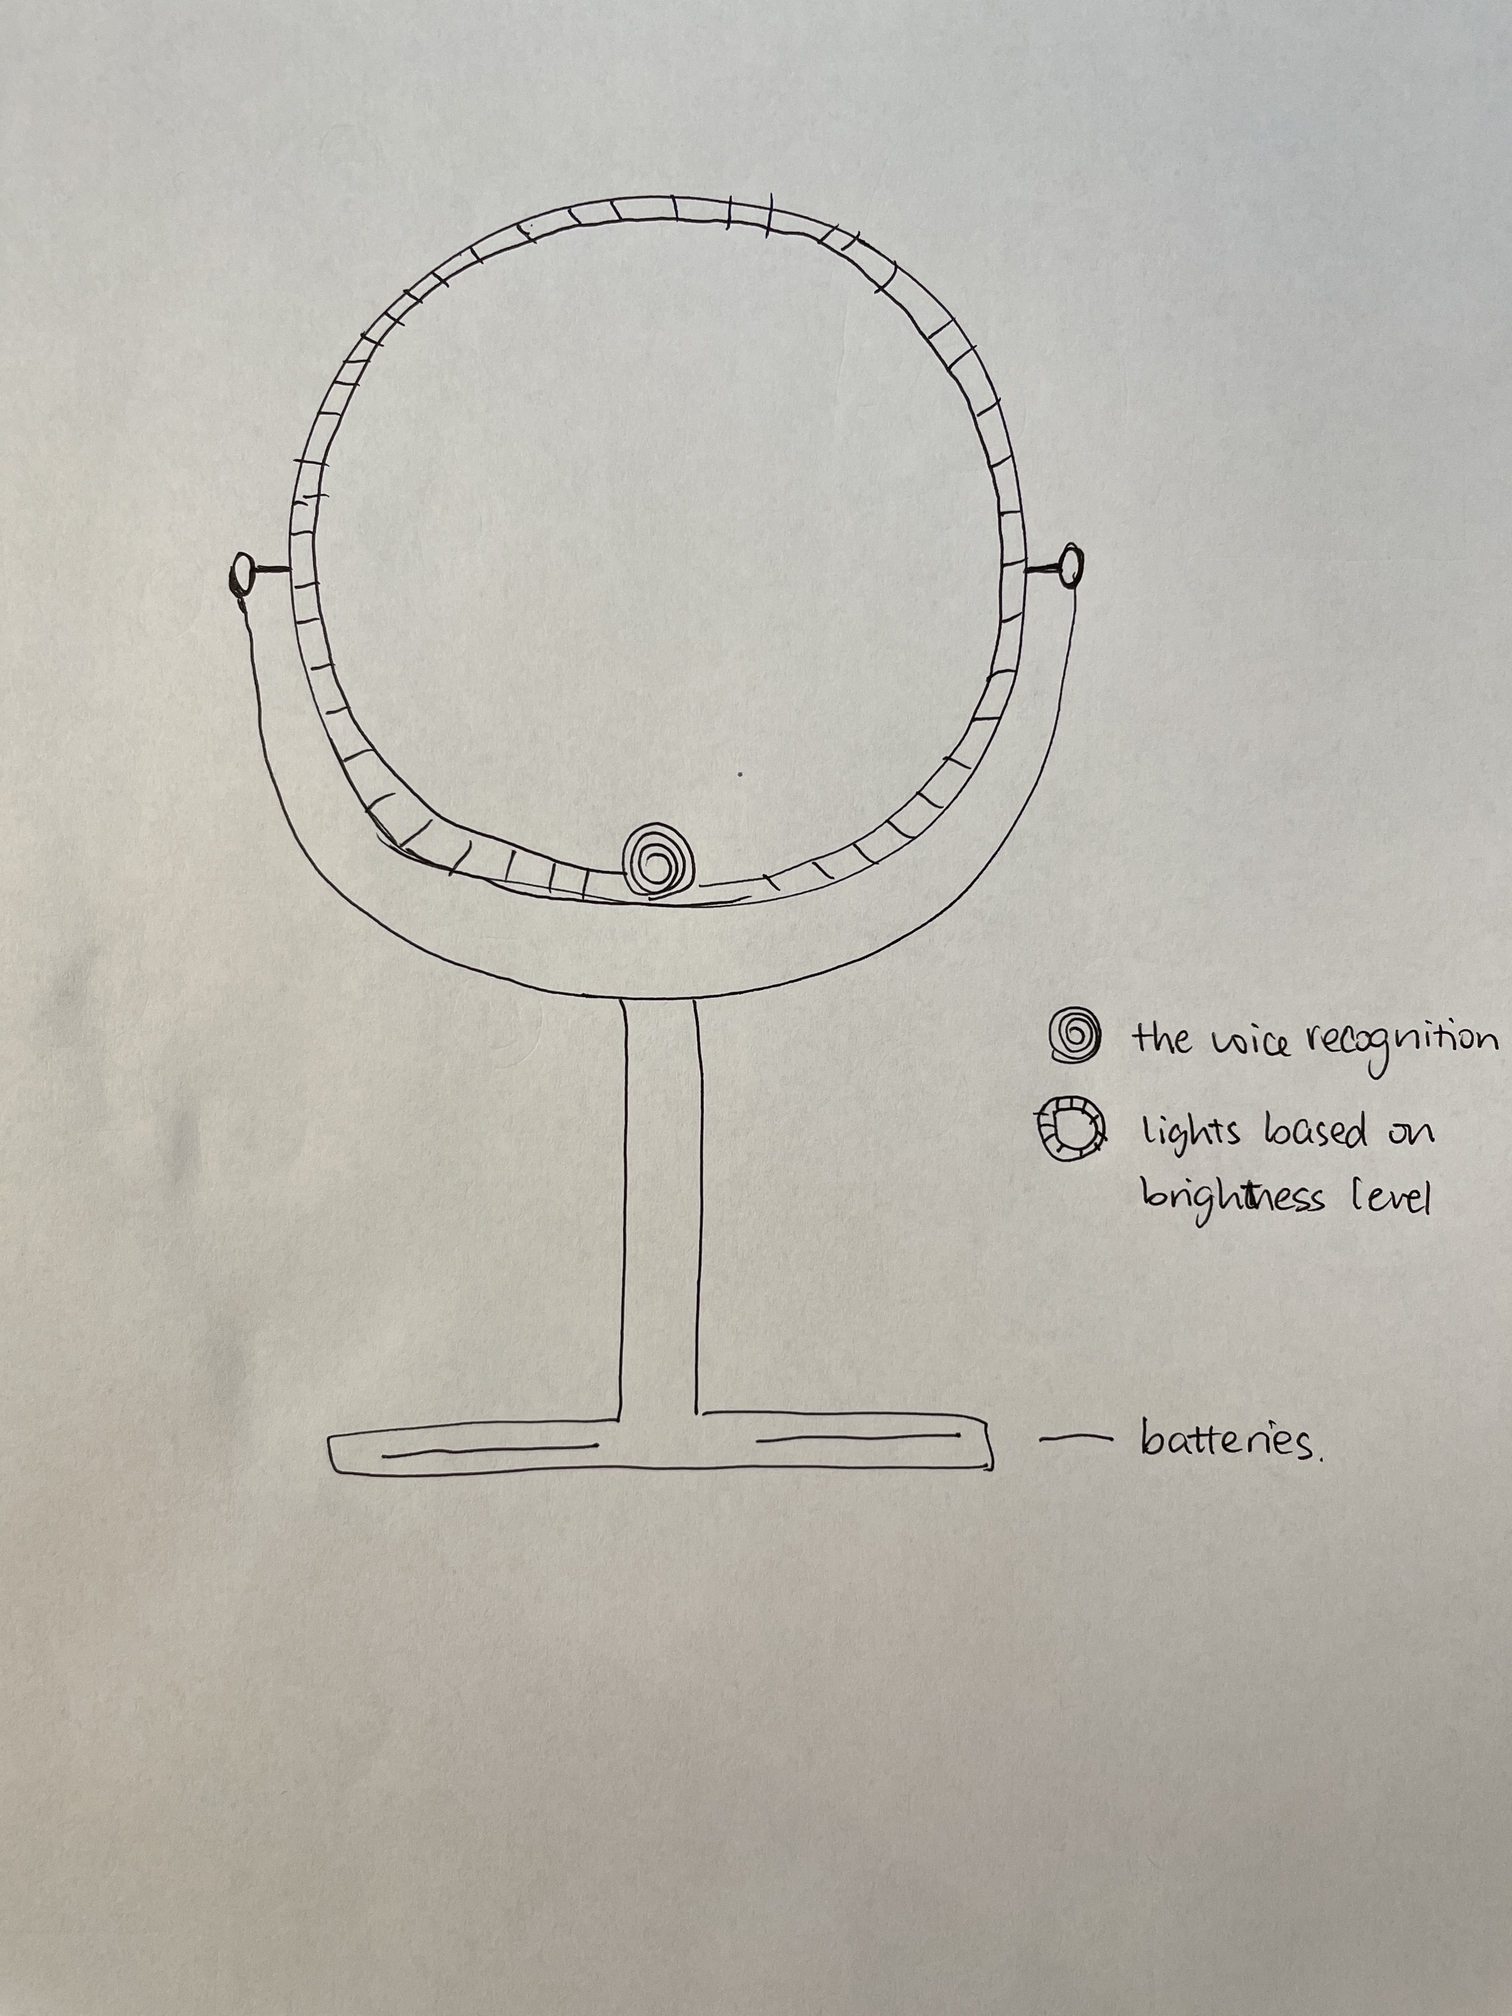 the voice recognition
lights based on
brightness level
batteries.